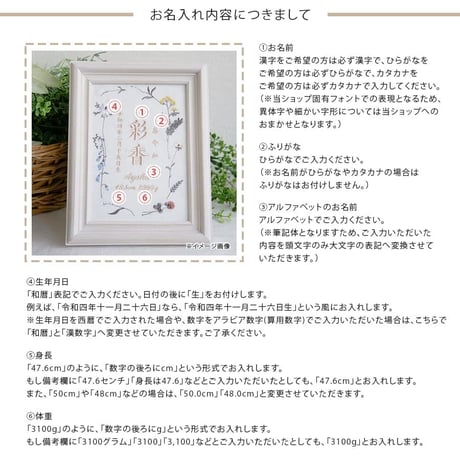 お名入れ内容につきまして
①お名前
漢字をご希望の方は必ず漢字で、ひらがなを
ご希望の方は必ずひらがなで、カタカナを
ご希望の方は必ずカタカナで入力してください。
(※当ショップ固有フォントでの表現となるため、
異体字や細かい字形については当ショップへの
おまかせとなります。)
②ふりがな
ひらがなでご入力ください。
(※お名前がひらがなやカタカナの場合は
ふりがなはお付けしません。)
③アルファベットのお名前
アルファベットでご入力ください。
(※筆記体となりますため、ご入力いただいた
内容を頭文字のみ大文字の表記へ変換させて
いただきます。)
④
①
②
彩香
③
⑤
⑥
※イメージ画像
④生年月日
「和暦」表記でご入力ください。日付の後に「生」をお付けします。
例えば、「令和四年十一月二十六日」なら、「令和四年十一月二十六日生」という風にお入れします。
※生年月日を西暦でご入力された場合や、数字をアラビア数字(算用数字)でご入力いただいた場合は、こちらで
「和暦」と「漢数字」へ変更させていただきます。ご了承ください。
⑤身長
「47.6cm」のように、「数字の後ろにcm」という形式でお入れします。
もし備考欄に「47.6センチ」「身長は47.6」などとご入力いただいたとしても、「47.6cm」とお入れします。
また、「50cm」や「48cm」などの場合は、「50.0cm」「48.0cm」と変更させていただきます。
⑥体重
「3100g」のように、「数字の後ろにg」という形式でお入れします。
もし備考欄に「3100グラム」「3100」「3,100」などとご入力いただいたとしても、「3100g」とお入れします。